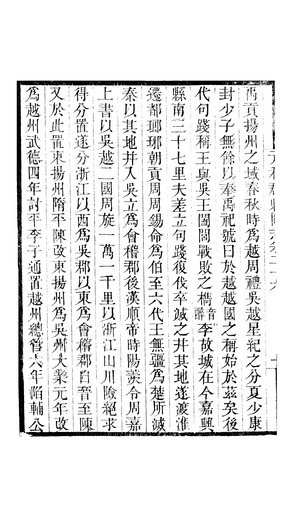 禹貢揚州之域春秋時爲越周禮吳越星紀之分夏少康
封少子無餘以奉禹祀號曰於越越國之稱始於茲矣後
代句踐稱王與吳王闔閭戰敗之檇音醉李故城在今嘉興
縣南三十七里夫差立句踐復伐卒滅之并其地遂渡淮
遷都瑯琊朝貢周周錫命爲伯至六代王無疆爲楚所滅
秦以其地并入吳立爲會稽郡後漢順帝時陽羨令周嘉
上書以吳越二國周旋一萬一千里以浙江山川險絕求
得分置遂分浙江以西爲吳郡以東爲會稽郡自晉至陳
又於此置東揚州隋平陳改東揚州爲吳州大業元年改
爲越州武德四年討平李子通置越州總管六年陷輔公